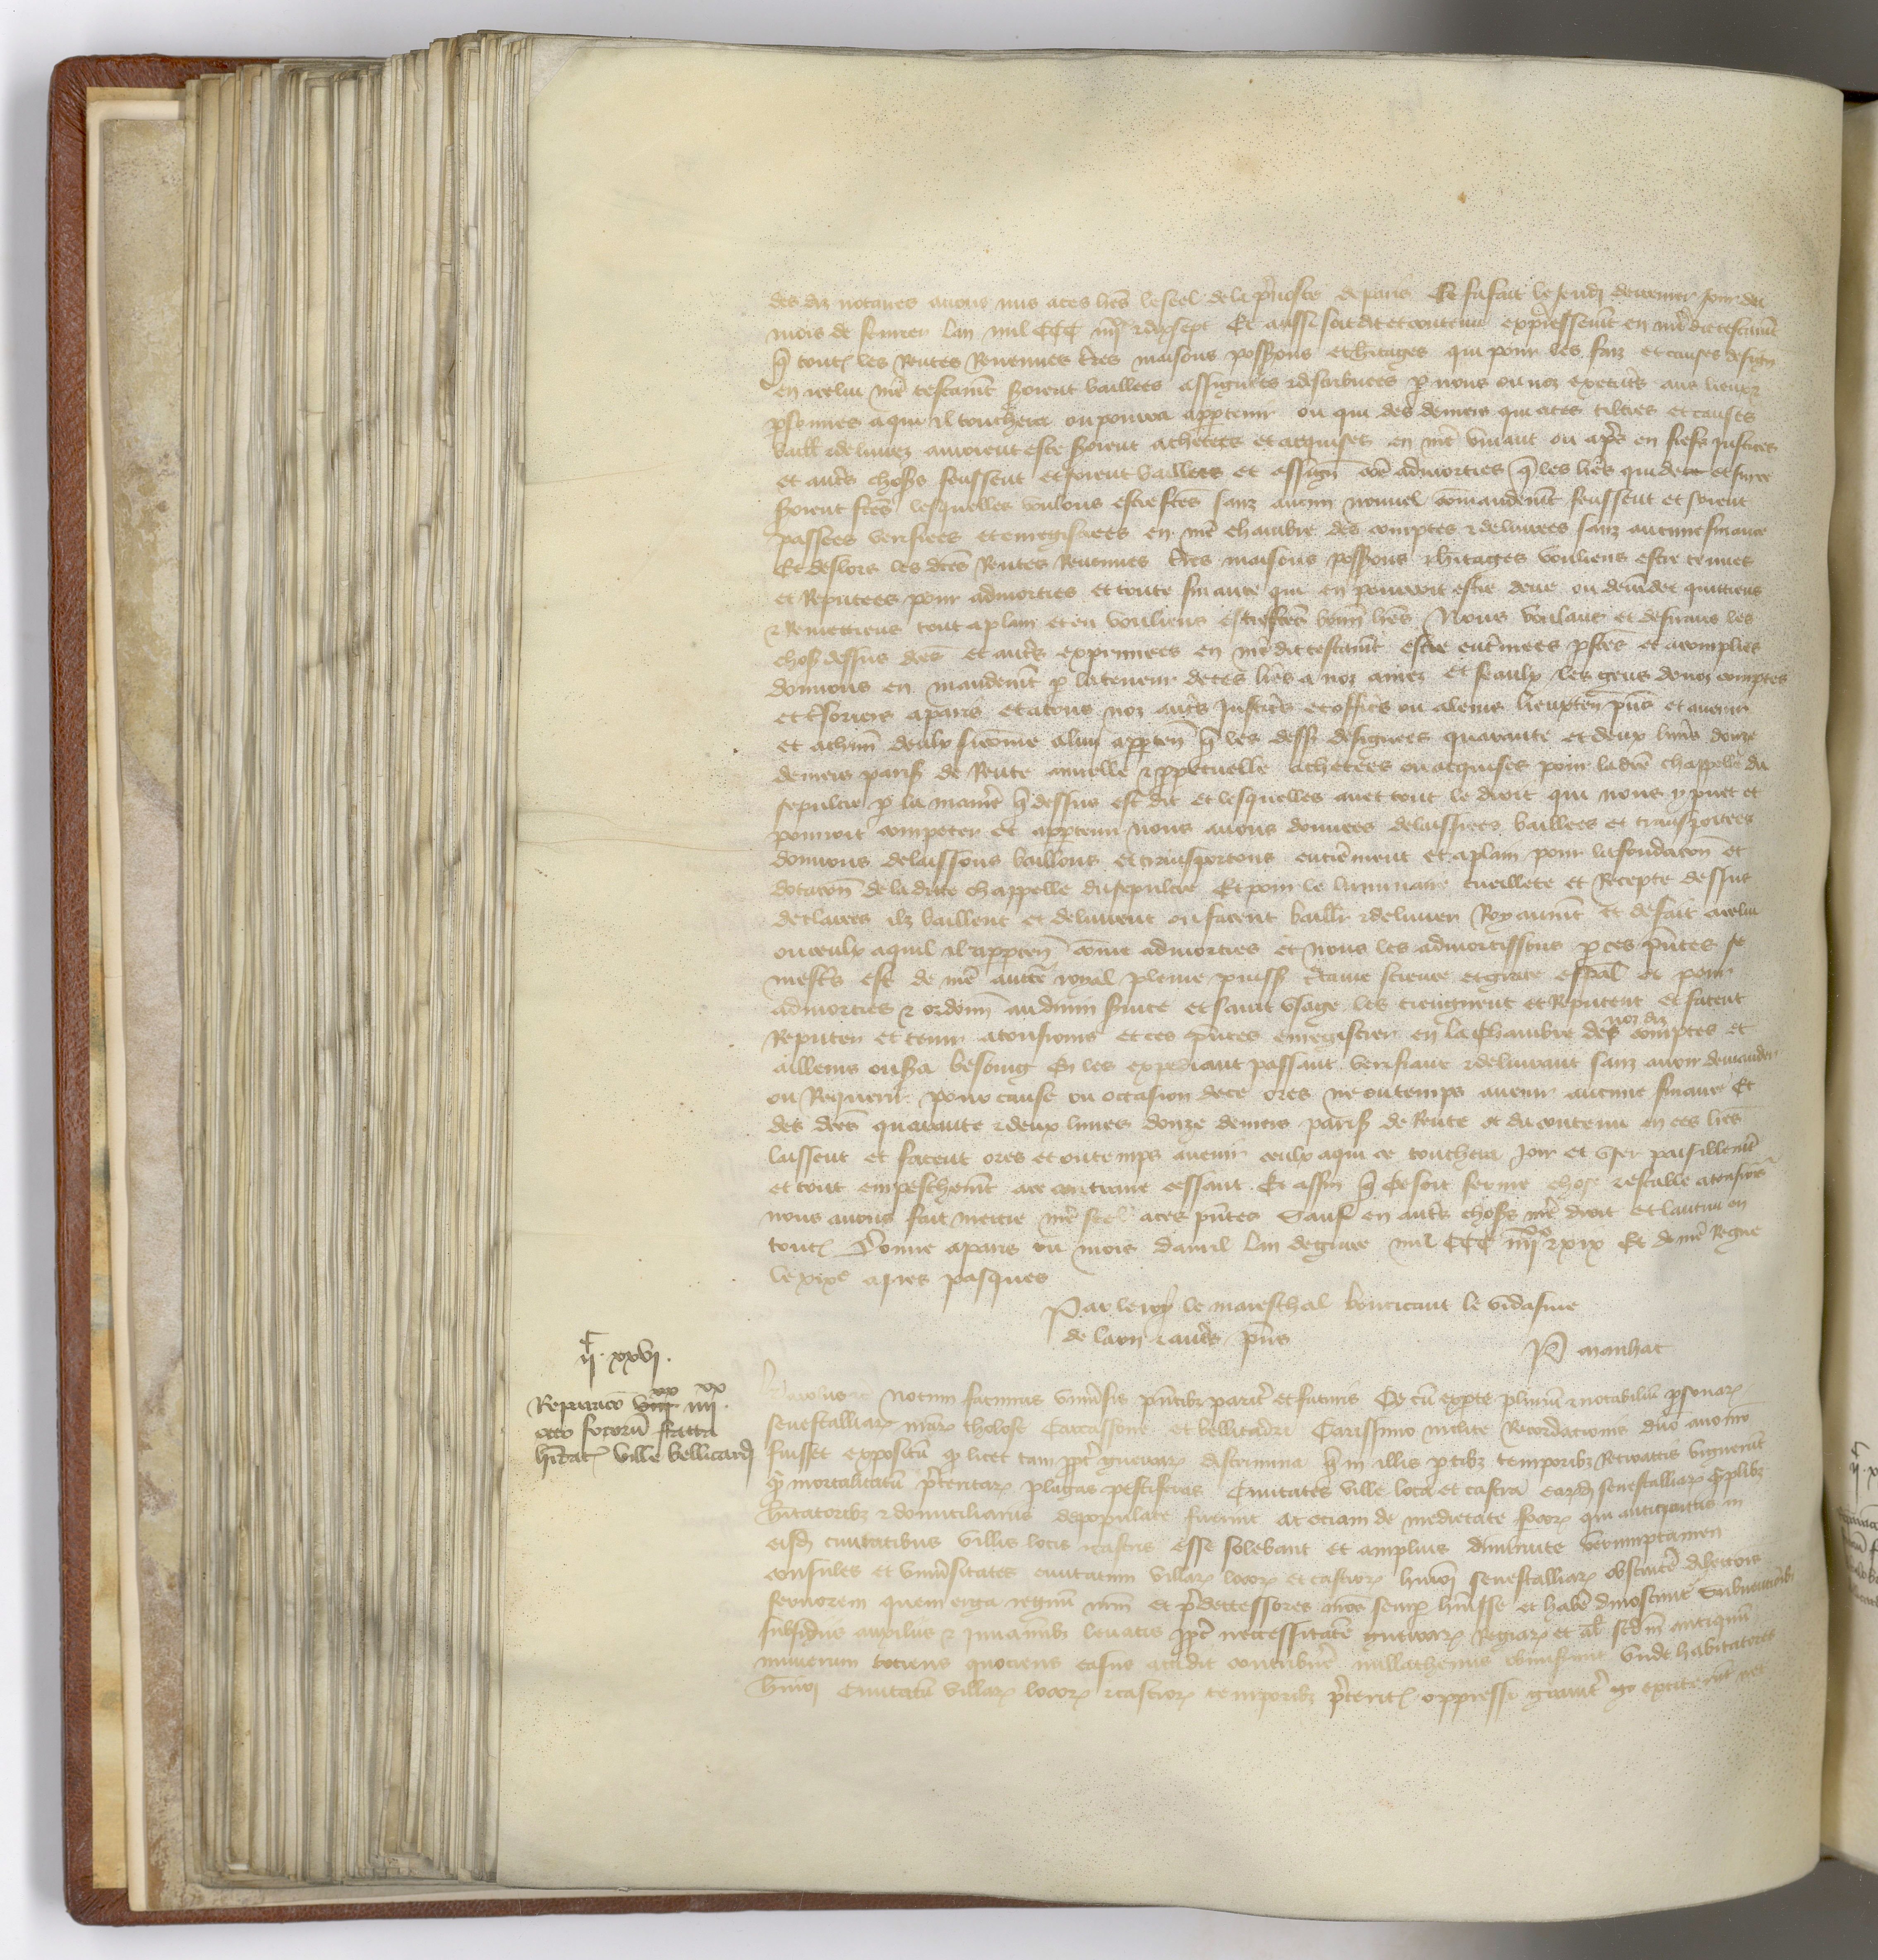 des diz notaires avons mis a ces lres le seel de la pvoste de paris Ce fu fait le jeudi derrenier jour du
mois de fevrier lan mil CCC iiiixx & dixsept Et aussi soit dit et contenu expressemt en nre dit testamt
q toutes les Rentes Revenues tres maisons possessions et hitages qui pour les faiz et causes design
en icelui nre testamt seroient baillees assignees & distribuees p nous ou noz execut's aus lieux &
psonnes a qui il touchera ou pourra appartenir ou qui des deniers qui a ces tiltres et causes
baill & delivrez auroient este seroient achetees et acquises en nre vivant ou aps en fiefs justices
et aut's choses feussent et soient baillees et assign coe admorties q les lres qui de ce et sur ce
seroient fces lesquelles voulons estre fces sanz aucun nouvel comandemt feussent et soient
passees verifiees et enregistrees en nre chambre des comptes & delivrees sanz aucune finance
Et deslors les dces Rentes Revenues tres maisons possons & hitages vouliens estre tenues
et Reputees pour admorties et toute finance qui en pourroit estre deue ou demandee quittiens
& Remettiens tout a plain et en vouliens estre fces bonn lres Nous voulans et desirans les
choses dessus dces et aut's exprimees en nre dit testamt estre enterinees pfces et acomplies
donnons en mandemt p la teneur de ces lres a noz amez et feaulx les gens de noz comptes
et tresoriers a paris et a tous noz aut's justiciers et officiers ou a leurs lieuxten pns et avenir
et a chun deulx si comme a lui apparten q les dess designees quarante et deux livres douze
deniers paris de Rente annuelle & ppetuelle achetees ou acquises pour la dce chappelle du
sepulcre p la maniere q dessus est dit et lesquelles avec tout le droit qui nous y puet et
pourroit competer et appartenir nous avons donnees delaissiees baillees et transportees
donnons delaissons baillons et transportons entierement et a plain pour la fondacon et
dotacon de la dicte chappelle du sepulcre Et pour le luminaire cueillete et Recepte dessus
declarees ilz baillent et delivrent ou facent baillr & delivrer Royaumt et de fait a celui
ou ceulx a qui il apparten comme admorties et nous les admortissons p ces pntes se
mestier est de nre aucte royal plaine puiss ctaine science et grace espal et pour
admorties & ordonn au divin service et saint usage les tiengnent et Reputent et facent
Reputer et tenir a tousjours et ces pntes enregistrer en la chambre des noz diz comptes et
ailleurs ou sera besoing En les expediant passant verifiant & delivrant sanz avoir demander
ou Requerir pour cause ou occasion de ce ores ne ou temps avenir aucune finance Et
des dces quarante & deux livres douze deniers paris de Rente et du contenu en ces lres
laissent et facent ores et ou temps avenir ceulx a qui ce touchera joir et user paisiblemt
et tout empeschemt a ce contraire cessant Et affin q ce soit ferme chose & estable a tousjours
nous avons fait mettre nre seel a ces pntes Sauf en aut's choses nre droit et lautrui en
toutes Donne a paris ou mois davril lan de grace mil CCC iiiixx & xix Et de nre Regne
le xixe apres pasques
Par le roy le mareschal bouciquaut le vidasme
de laon & aut's pns
P manhac
iic xxvi
Reparacio viii xx iiii xx
octo focorum facta
hitat ville bellicadri
Karolus etc notum facimus universis pntibz parit' et futuris Q cu ex parte plurium & notabiliu psonar
senescalliar nrar tholose Carcassone et bellicadri Carissimo inclite Recordacionis dno avo nro
fuisset expositu q licet tam ppt guerrar discrimina q in illis ptibz temporibz Retroactis viguerut
q mortalitatu pteritar plagas pestiferas Civitates ville loca et castra eardem senescalliar eplibz
hitatoribz & domiciliariis depopulate fuerint ac etiam de medietate focor qui antiquitus in
eisd civitatibus villis locis & castris esse solebant et amplius diminute verumptamen
consules et univsitates civitatum villar locor et castror hmoi senescalliar obstante dileccionis
fervorem quem erga regnu nrm et pdecessores nros semp huisse et habe dinoscunt Subvencionibz
subsidiis auxiliis & juvaminibz levatis ppt necessitate guerrar Regiar et al scdm antiquu
numerum tociens quociens casus accidit contribue nullathenus obmiserunt Unde habitatores
hmoi Civitatu villar locor & castror temporibz pterit oppressi gravit' go extiterut nec